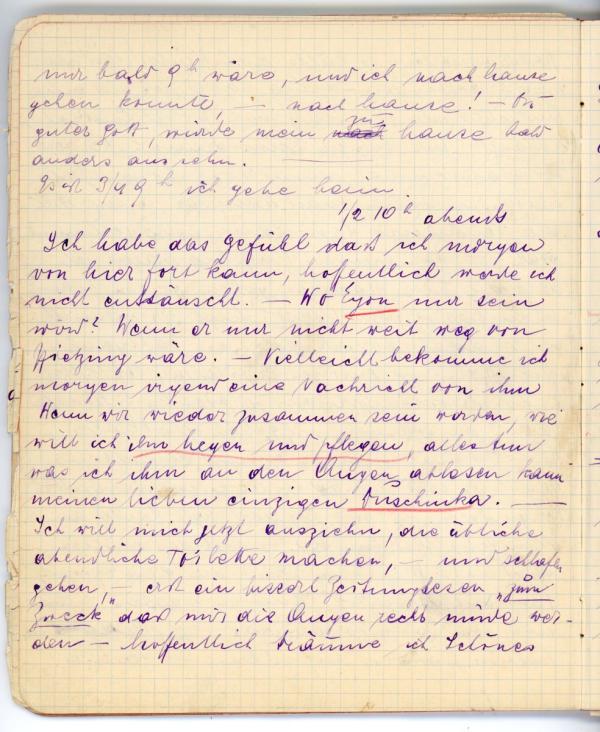 nur bald 9h wäre, und ich nach hause
gehen könnte, — nach hause! — Du
guter Gott, würde mein zu hause bald
anders aussehn.
Es ist 3/4 9h ich gehe heim.
1/2 10h abends
Ich habe das Gefühl dass ich morgen
von hier fort kann, hoffentlich werde ich
nicht enttäuscht. — Wo Egon nur sein
wird? Wenn er nur nicht weit weg von
Hietzing wäre. — Vielleicht bekomme ich
morgen irgend eine Nachricht von ihm
Wenn wir wieder zusammen sein werden, wie
will ich ihn hegen und pflegen, alles tun
was ich ihm an den Augen ablesen kann
meinen lieben einzigen Duschinka. —
Ich will mich jetzt ausziehn, die übliche
abendliche Toilette machen, — und schlafen
gehen, — erst ein bisserl Zeitunglesen „zum
Zweck" dass mir die Augen recht müde wer-
den — hoffentlich träume ich Schönes